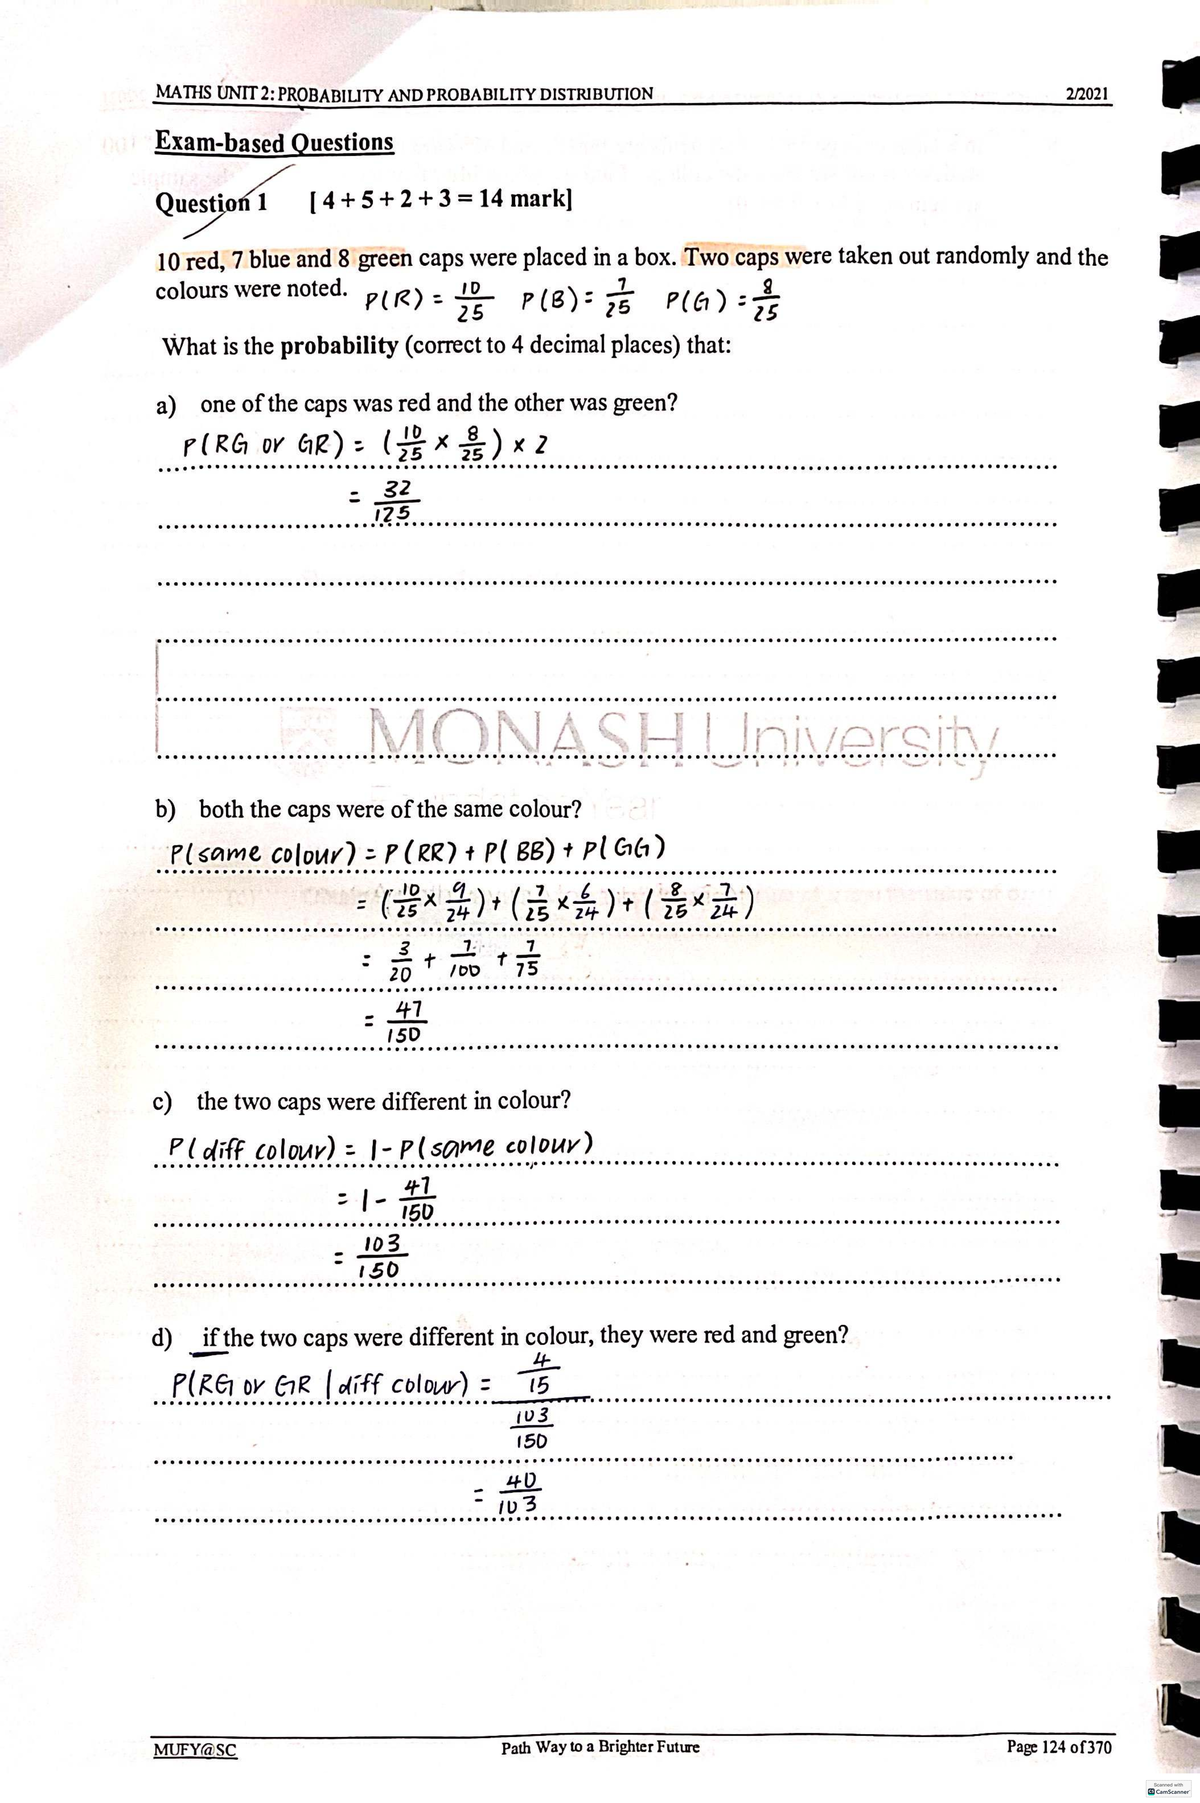 MATHS UNIT 2: PROBABILITY AND PROBABILITY DISTRIBUTION 2/2021
Exam-based Questions
Question 1 [ 4 + 5 + 2 + 3 = 14 mark]
10 red, 7 blue and 8 green caps were placed in a box. Two caps were taken out randomly and the
colours were noted. P(R) = 10/25 P(B) = 7/25 P(G) = 8/25
What is the probability (correct to 4 decimal places) that:
a) one of the caps was red and the other was green?
P(RG or GR) = (10/25 × 8/25) × 2
= 32/125
MONASH University
b) both the caps were of the same colour?
P(same colour) = P(RR) + P(BB) + P(GG)
= (10/25 × 9/24) + (7/25 × 6/24) + (8/25 × 7/24)
= 3/20 + 7/100 + 7/75
= 47/150
c) the two caps were different in colour?
P(diff colour) = 1 - P(same colour)
= 1 - 47/150
= 103/150
d) if the two caps were different in colour, they were red and green?
P(RG or GR | diff colour) = 4/15 / 103/150
= 40/103
MUFY@SC Path Way to a Brighter Future Page 124 of 370
Scanned with
CS CamScanner